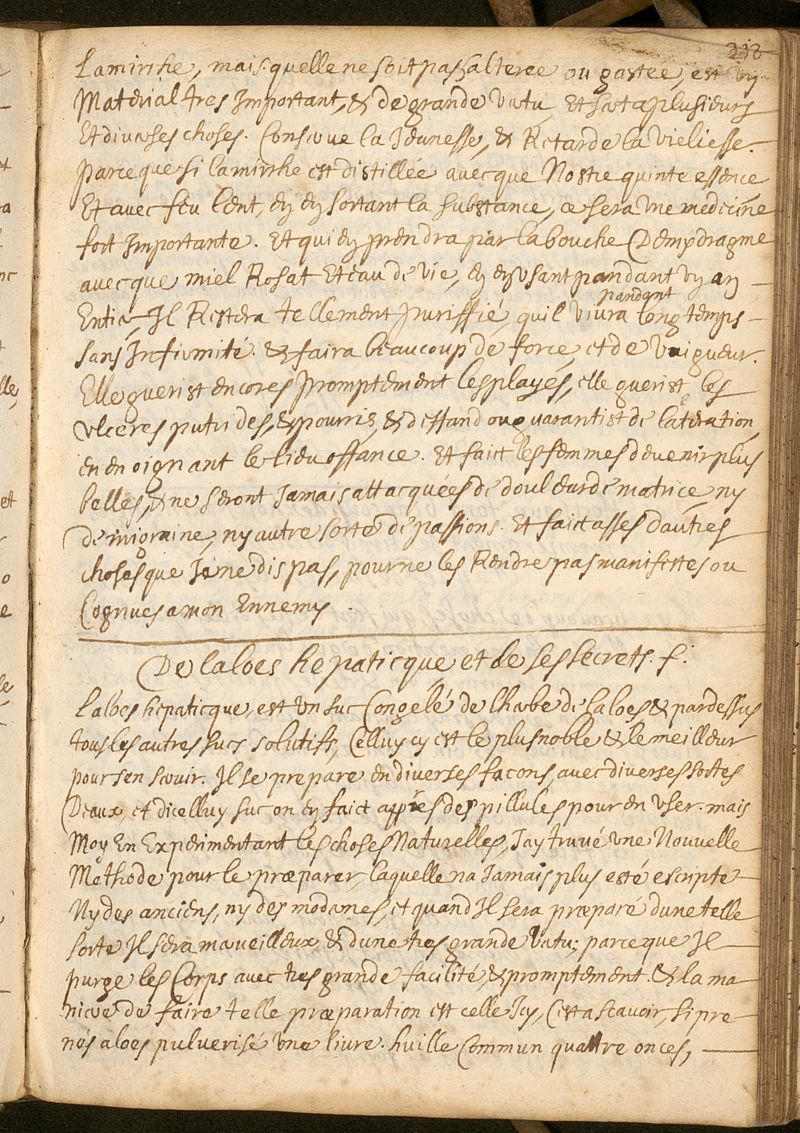 238
Lamirrhe, mais quelle ne soit pas alteree ou gastee, est vn
Material tres Important, & de grande vertu, Et sert a plusieurs
Et diverses choses. Conserve la Jeunesse, & Retarde la vieliesse.
parceque si lamirrhe est distillée avecque Nostre quinte essence
Et avec feu lent, en en sortant la substance, ce sera vne medecine
fort Importante. Et qui en prendra par la bouche Demydragme
avecque miel Rosat Et eau de vie, en en vsant pandant vn an
Entier, Il Restera tellement puriffié, quil vivra pandant long temps
sans Infirmité. & faira beaucoup de force, et de vaigueur.
Elle guerist encores promptement les playes, elle guerist les
vlceres putrides, & pourris, & deffand ou guarantist de lateration,
en en oignant le lieu offancé. Et faict les femmes devenir plus
belles, & ne seront Jamais attacquées de douleur de matrice, ny
de migraine, ny autre sorte de passions. Et faict asses dautres
choses que Je ne dis pas, pour ne les Rendre pas manifestes ou
Cognues a mon Ennemy.
De laloes hepaticque et de ses secrets. f.
Laloes hepaticque, est vn suc Congelé de lherbe de laloes & pardessus
tous les autres sucs solutifs, Celluy cy est le plus noble & le meilleur
pour sen servir. Il se prepare en diverses facons, avec diverses sortes
Deaux, et dicelluy suc on en faict appres des pillules pour en vser. mais
Moy En Experimentant les choses Naturelles, Jay truvé vne Nouvelle
Methode pour le præparer, laquelle na Jamais plus esté escripte
Ny des anciens, ny des modernes, et quand Il sera præparé dune telle
sorte Il sera merveilleux, & dune tres grande vertu; parceque Il
purge les Corps avec tres grande facilité, & promptement. & la ma
niere de faire telle præparation est celle Icy, Cest a scavoir, si pre
nés aloes pulverisé vne livre. huille Commun quattre onces,